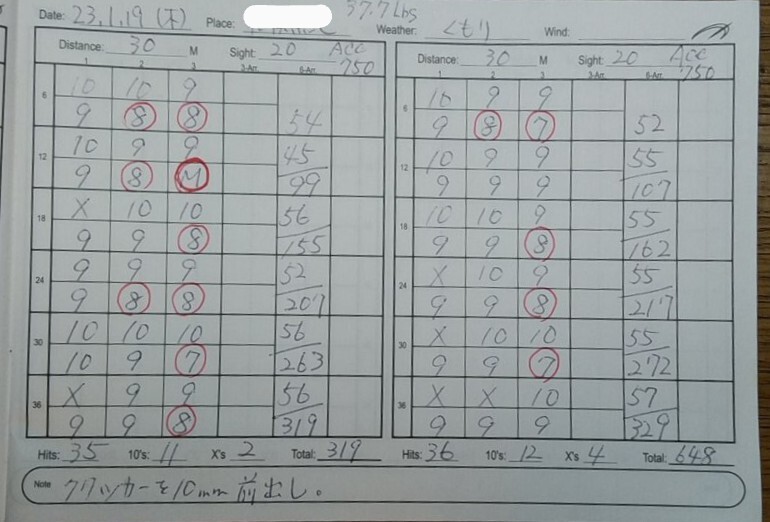 Date: 23.1.19 (木) Place: 37.7 Lbs Weather: くもり Wind:
Distance: 30 M Sight: 20 Acc 750
1 2 3 3-Arr. 6-Arr.
6 10 10 9
9 8 8 54
12 10 9 9 45
9 8 M 99
18 X 10 10 56
9 9 8 155
24 9 9 9 52
9 8 8 207
30 10 10 10 56
10 9 7 263
36 X 9 9 56
9 9 8 319
Hits: 35 10's: 11 X's 2 Total: 319
Distance: 30 M Sight: 20 Acc 750
1 2 3 3-Arr. 6-Arr.
6 10 9 9
9 8 7 52
12 10 9 9 55
9 9 9 107
18 10 10 9 55
9 9 8 162
24 X 10 9 55
9 9 8 217
30 X 10 10 55
9 9 7 272
36 X X 10 57
9 9 9 329
Hits: 36 10's: 12 X's 4 Total: 648
Note クリッカーを10mm前出し。